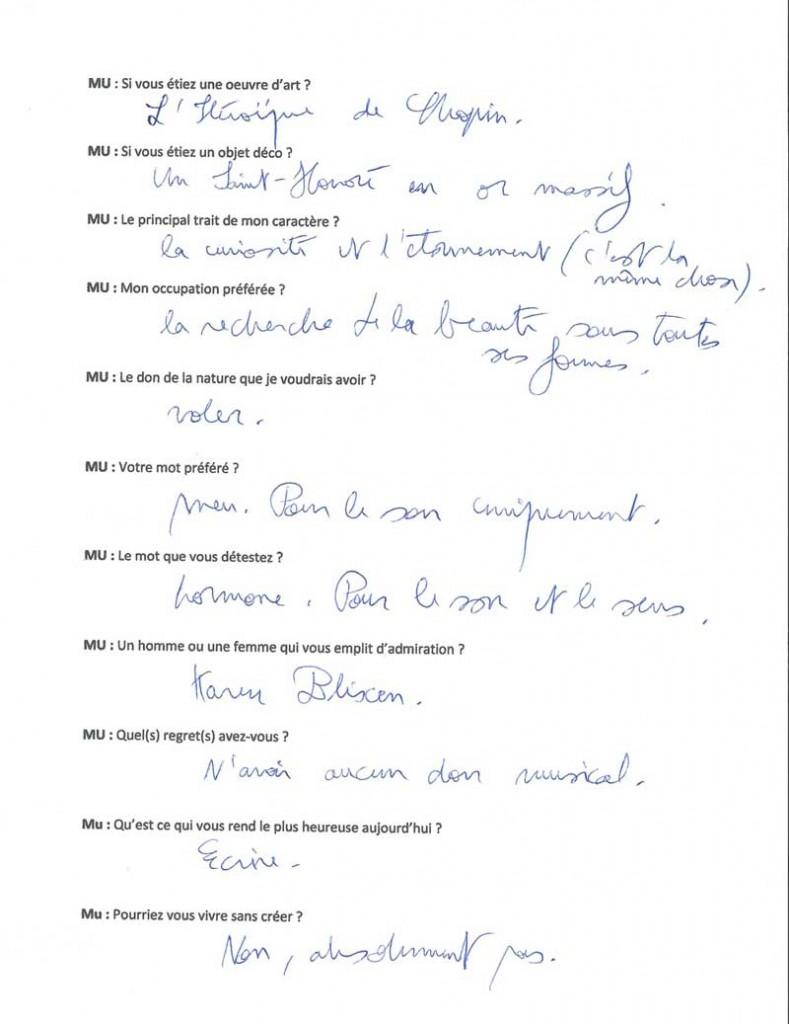 MU : Si vous étiez une oeuvre d'art ?
L'Héroïque de Chopin.
MU : Si vous étiez un objet déco ?
Un Saint-Honoré en or massif.
MU : Le principal trait de mon caractère ?
la curiosité et l'étonnement (c'est la
même chose).
MU : Mon occupation préférée ?
la recherche de la beauté sous toutes
ses formes.
MU : Le don de la nature que je voudrais avoir ?
voler.
MU : Votre mot préféré ?
pneu. Pour le son uniquement.
MU : Le mot que vous détestez ?
hormone. Pour le son et le sens.
MU : Un homme ou une femme qui vous emplit d'admiration ?
Karen Blixen.
MU : Quel(s) regret(s) avez-vous ?
N'avoir aucun don musical.
Mu : Qu'est ce qui vous rend le plus heureuse aujourd'hui ?
Ecrire.
Mu : Pourriez vous vivre sans créer ?
Non, absolument pas.